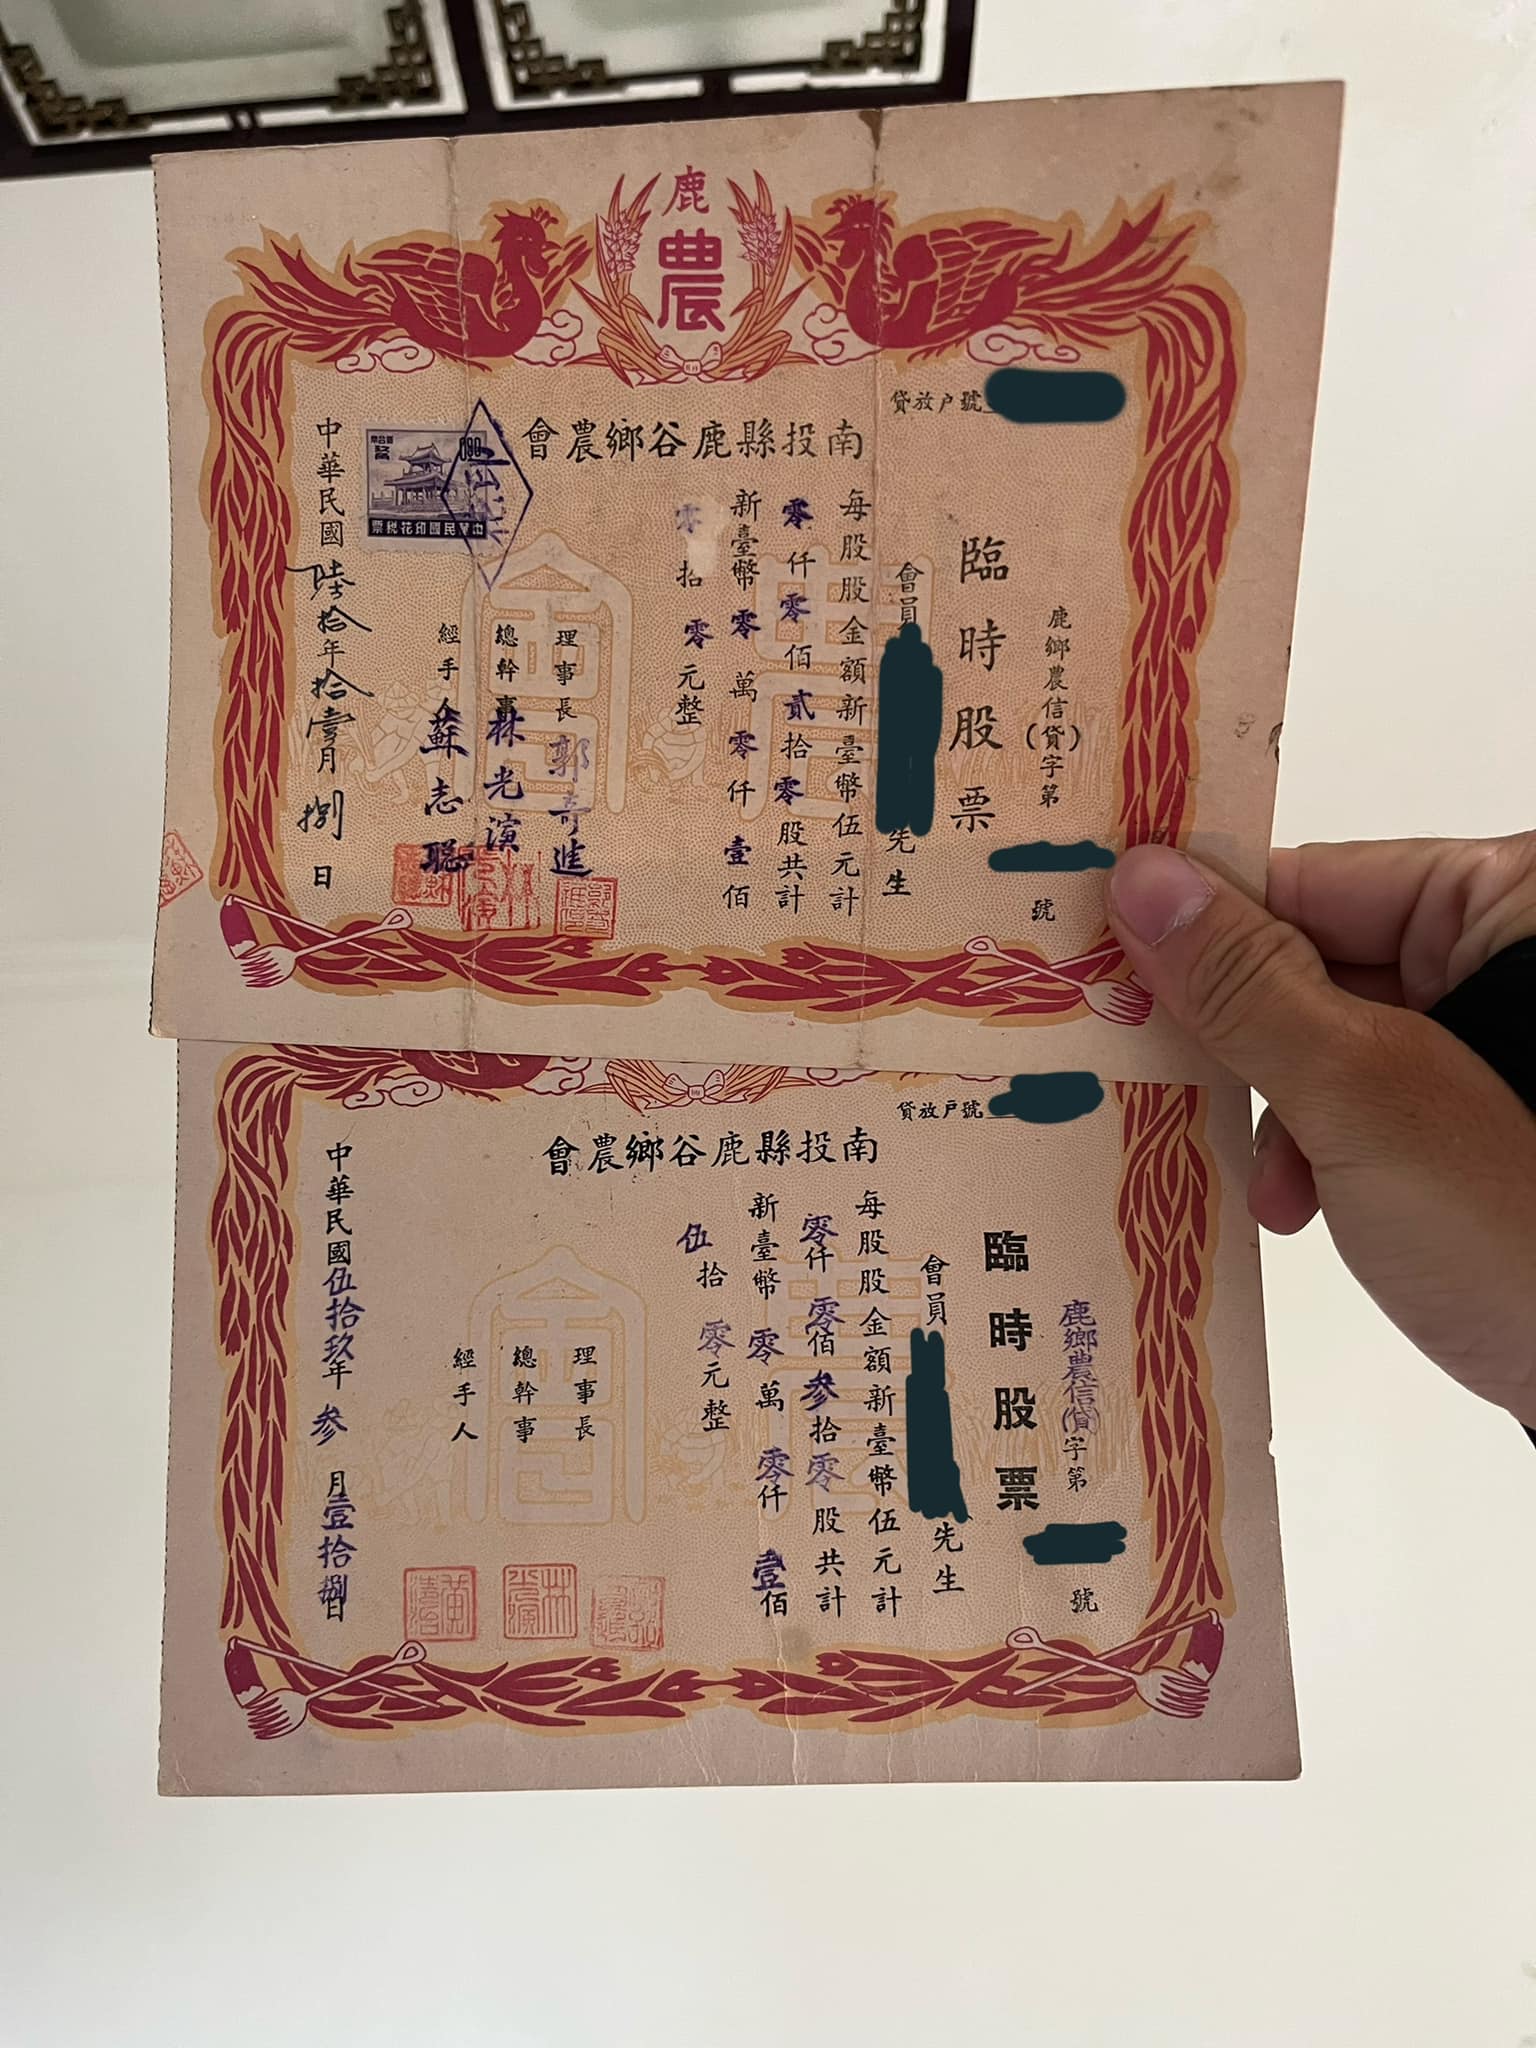 鹿
農
貸放戶號
南投縣鹿谷鄉農會
鹿鄉農信(貸)字第
號
臨時股票
會員
先生
每股股金額新臺幣伍元計
零仟零佰貳拾零股共計
新臺幣零萬零仟壹佰
零拾零元整
理事長郭奇進
總幹事林光演
經手人蘇志聰
中華民國印花稅票
中華民國陸拾年拾壹月捌日
貸放戶號
南投縣鹿谷鄉農會
鹿鄉農信(貸)字第
號
臨時股票
會員
先生
每股股金額新臺幣伍元計
零仟零佰叁拾零股共計
新臺幣零萬零仟壹佰
伍拾零元整
理事長
總幹事
經手人
中華民國伍拾玖年叁月壹拾捌日